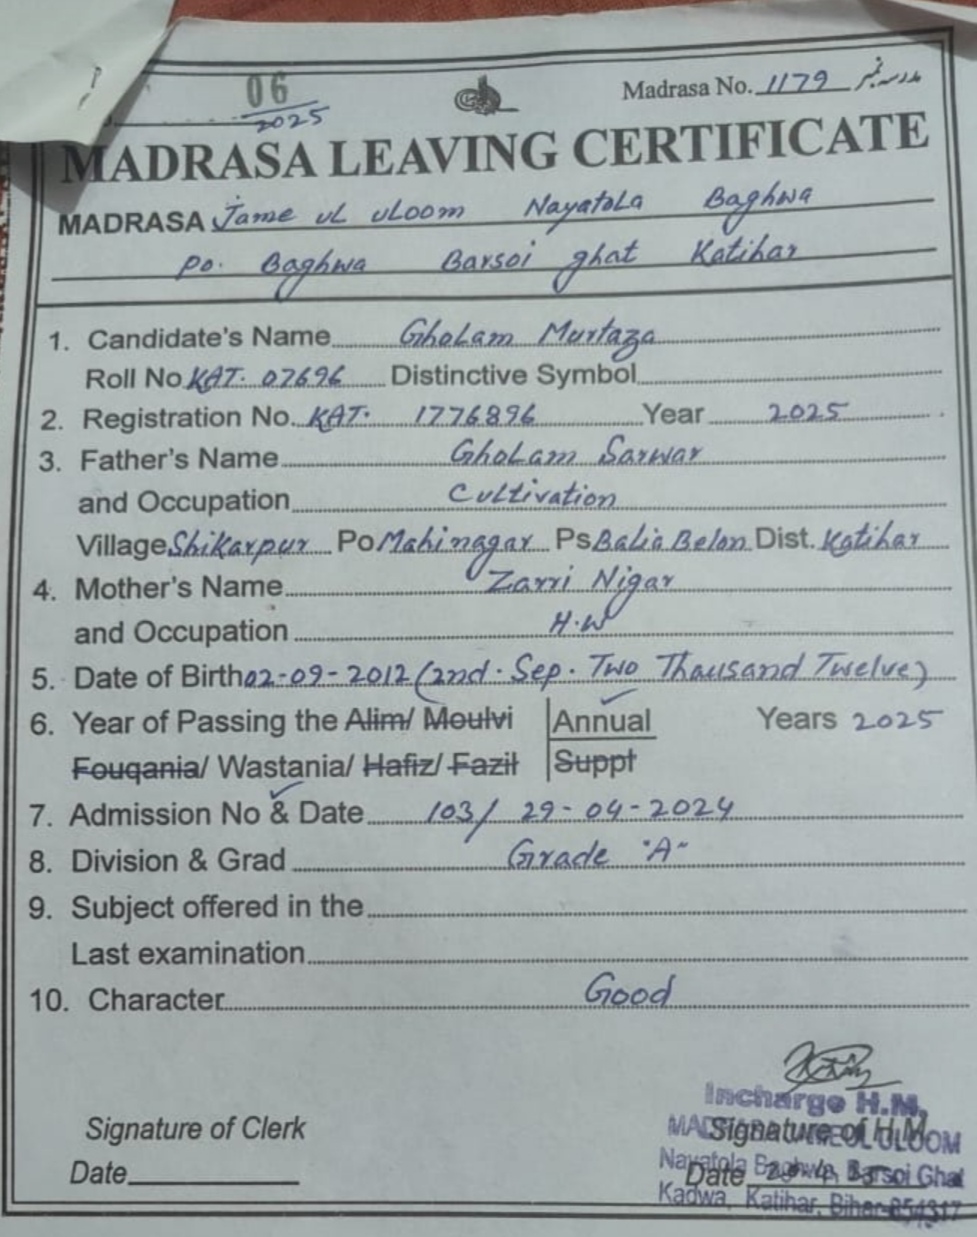 06
2025
Madrasa No. 1179 مدرسہ نمبر
MADRASA LEAVING CERTIFICATE
MADRASA Jame ul uloom Nayatola Baghwa
Po. Baghwa Barsoi ghat Katihar
1. Candidate's Name Gholam Murtaza
Roll No KAT. 07696 Distinctive Symbol
2. Registration No. KAT. 1776896 Year 2025
3. Father's Name Gholam Sarwar
and Occupation Cultivation
Village Shikarpur Po Mahinagar Ps Balia Belon Dist. Katihar
4. Mother's Name Zarri Nigar
and Occupation H.W
5. Date of Birth 02-09-2012 (2nd. Sep. Two Thousand Twelve)
6. Year of Passing the Alim/ Moulvi Annual Years 2025
Fouqania/ Wastania/ Hafiz/ Fazil Suppt
7. Admission No & Date 103/ 29-04-2024
8. Division & Grad Grade "A"
9. Subject offered in the
Last examination
10. Character Good
Incharge H.M.
Signature of Clerk Signature of H.M
ULOOM
Date Date
Nayatola Baghwa, Barsoi Ghat
Kadwa, Katihar, Bihar-854317